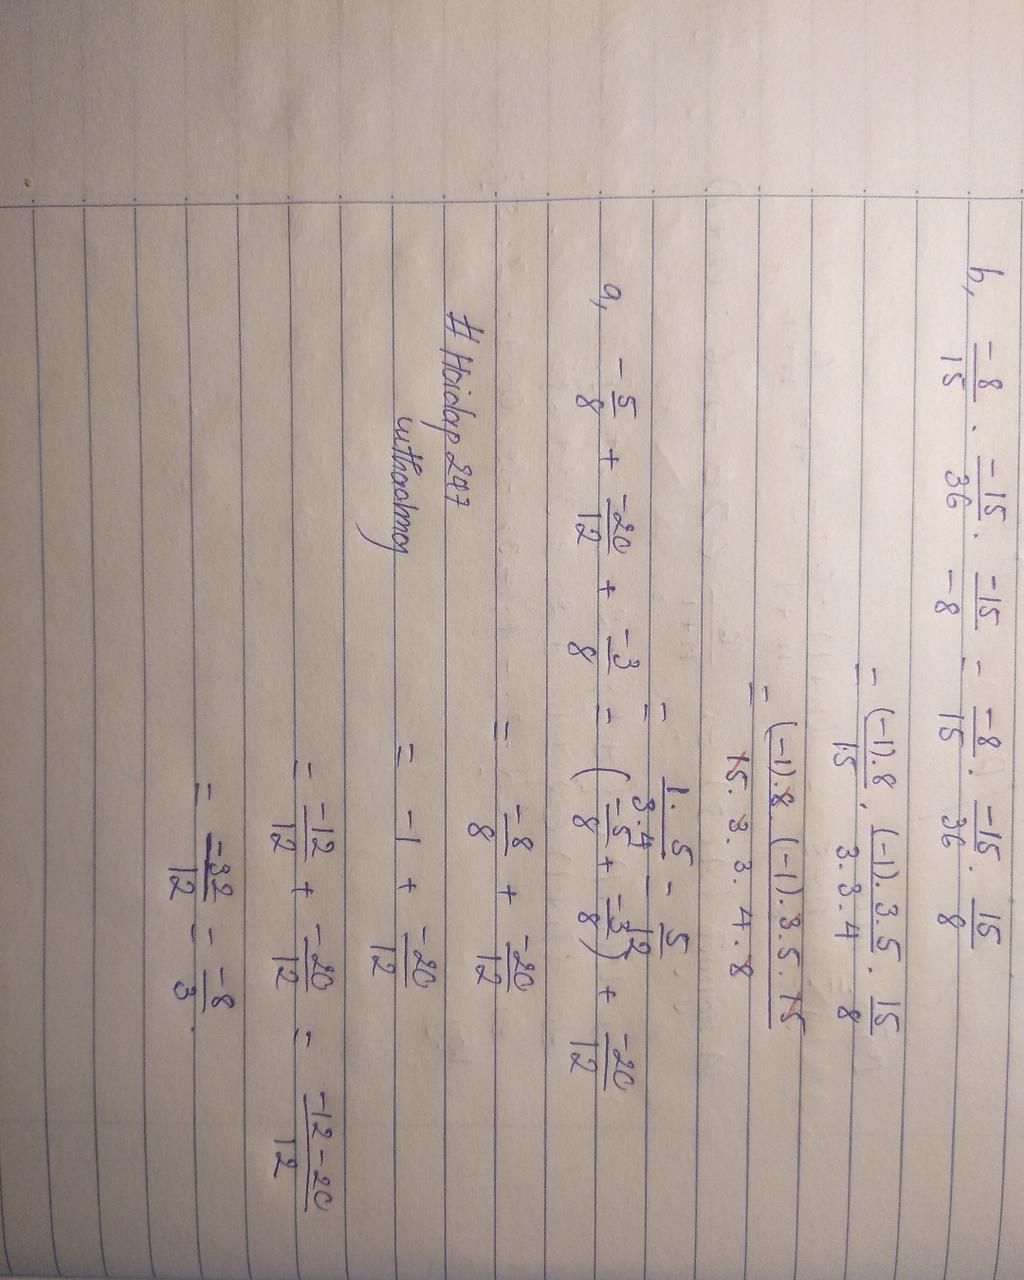 b, -8/15 . -15/36 . -15/-8 = -8/15 . -15/36 . 15/8
= (-1).8/15 . (-1).3.5/3.3.4 . 15/8
= (-1).8.(-1).3.5.15/15.3.3.4.8
= 1.5/3.4 = 5/12
a, -5/8 + -20/12 + -3/8 = (-5/8 + -3/8) + -20/12
= -8/8 + -20/12
# Hoidap 247
= -1 + -20/12
= -12/12 + -20/12 = -12-20/12
= -32/12 = -8/3.